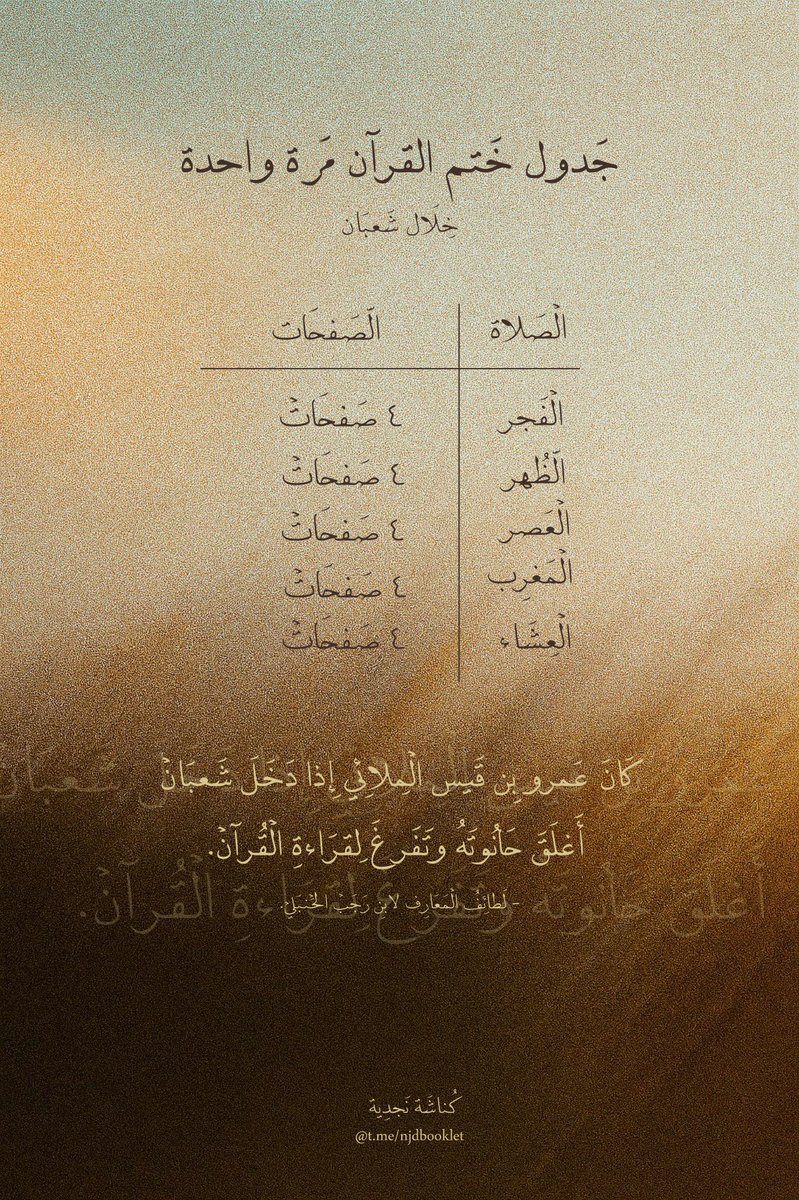 جَدول خَتم القرآن مَرة واحدة
خِلَال شَعبَان
الْصَلاة الّصَفحَات
الْفَجر ٤ صَفحَاتْ
الّظُهر ٤ صَفحَاتْ
الْعَصر ٤ صَفحَاتْ
الْمَغرِب ٤ صَفحَاتْ
الْعِشَاء ٤ صَفحَاتْ
كَانَ عَمرو بِن قَيس الْمِلائِي إِذا دَخَلَ شَعبَانْ
أَغلَقَ حَانُوتَهُ وتَفَرغَ لِقرَاءةِ الْقُرآنْ.
- لَطائِف الْمَعَارِف لابن رَجَبْ الحَْنبَلي.
كُناشَة نَجدِية
@t.me/njdbooklet